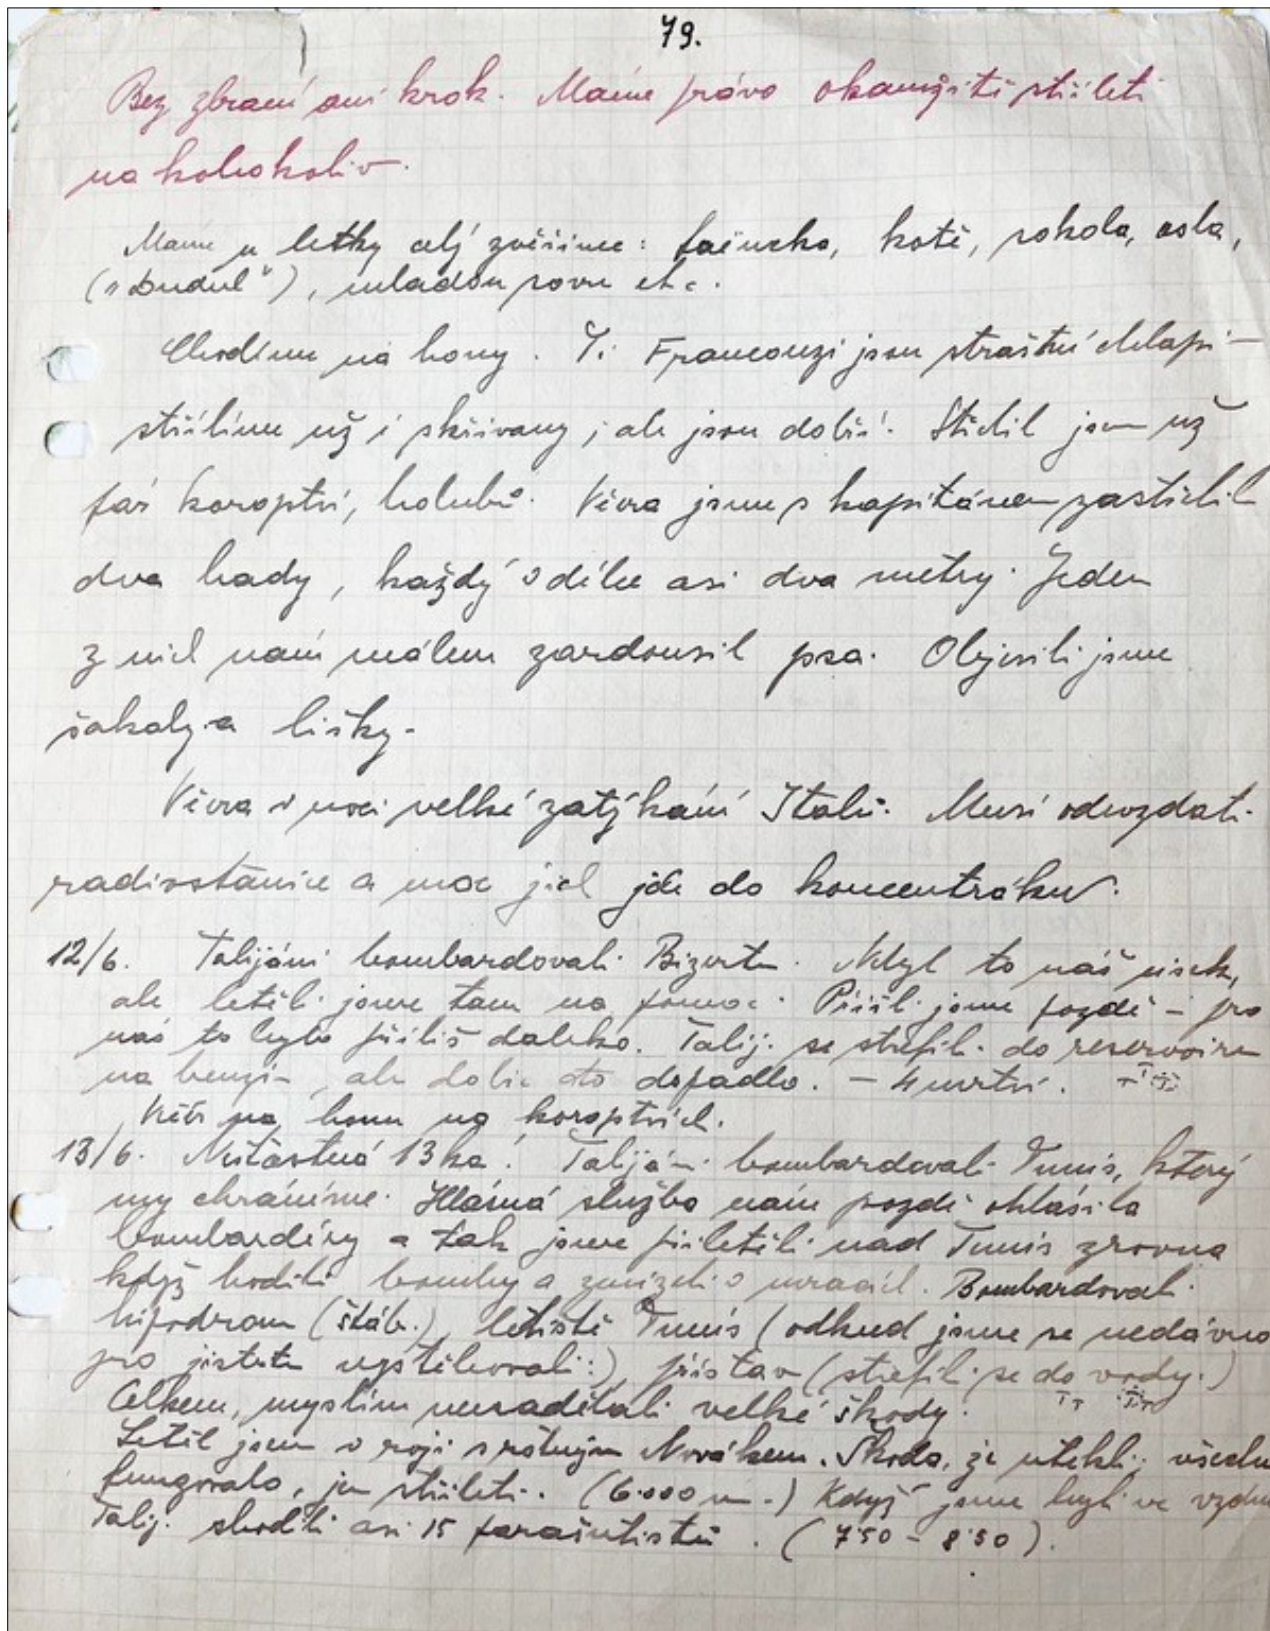 79.
Bez zbraní ani krok. Máme právo okamžitě stříleti
na kohokoliv.
Máme u letky celý zvěřinec: foxíncka, kotě, sokola, osla,
("Dudul"), mladou sovu etc.
Chodíme na hony. Ti Francouzi jsou strašní chlapi -
střílíme už i skřivany, ale jsou dobří. Střelil jsem už
pár koroptví, holubů. Včera jsme s kapitánem zastřelili
dva hady, každý v délce asi dva metry. Jeden
z nich nám málem zardousil psa. Objevili jsme
šakaly a lišky.
Včera v noci velké zatýkání Italů. Musí odevzdati
radiostanice a moc jich jde do koncentráku.
12/6. Talijáni bombardovali Bizertu. Nebyl to náš úsek,
ale letěli jsme tam na pomoc. Přišli jsme pozdě - pro
nás to bylo příliš daleko. Talij. se strefili do reservoiru
na benzin, ale dobře to dopadlo. - 4 mrtví.
Več. na honu na koroptvích.
13/6. Nešťastná 13ka! Talijáni bombardovali Tunis, který
my chráníme. Hlásná služba nám pozdě ohlásila
bombardéry a tak jsme přiletěli nad Tunis zrovna
když hodili bomby a zmizeli v mracích. Bombardovali
hipodrom (štáb.), letiště Tunis (odkud jsme se nedávno
pro jistotu vystěhovali:), přístav (strefili se do vody.)
Celkem, myslím nenadělali velké škody.
Letěl jsem v roji s rotným Novákem. Škoda, že utekli; všechno
fungovalo, jen stříleti. (6.000 m.) Když jsme byli ve vzduchu
Talij. shodili asi 15 parašutistů. (7'50 - 8'50).